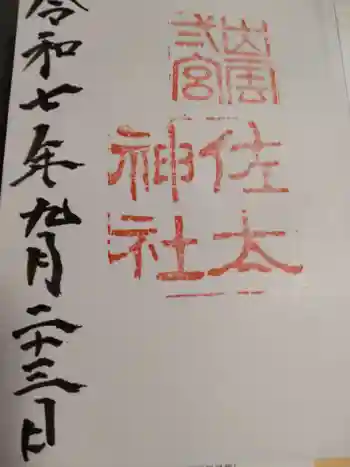 出雲
宮
佐太
神社
令和七年九月二十三日